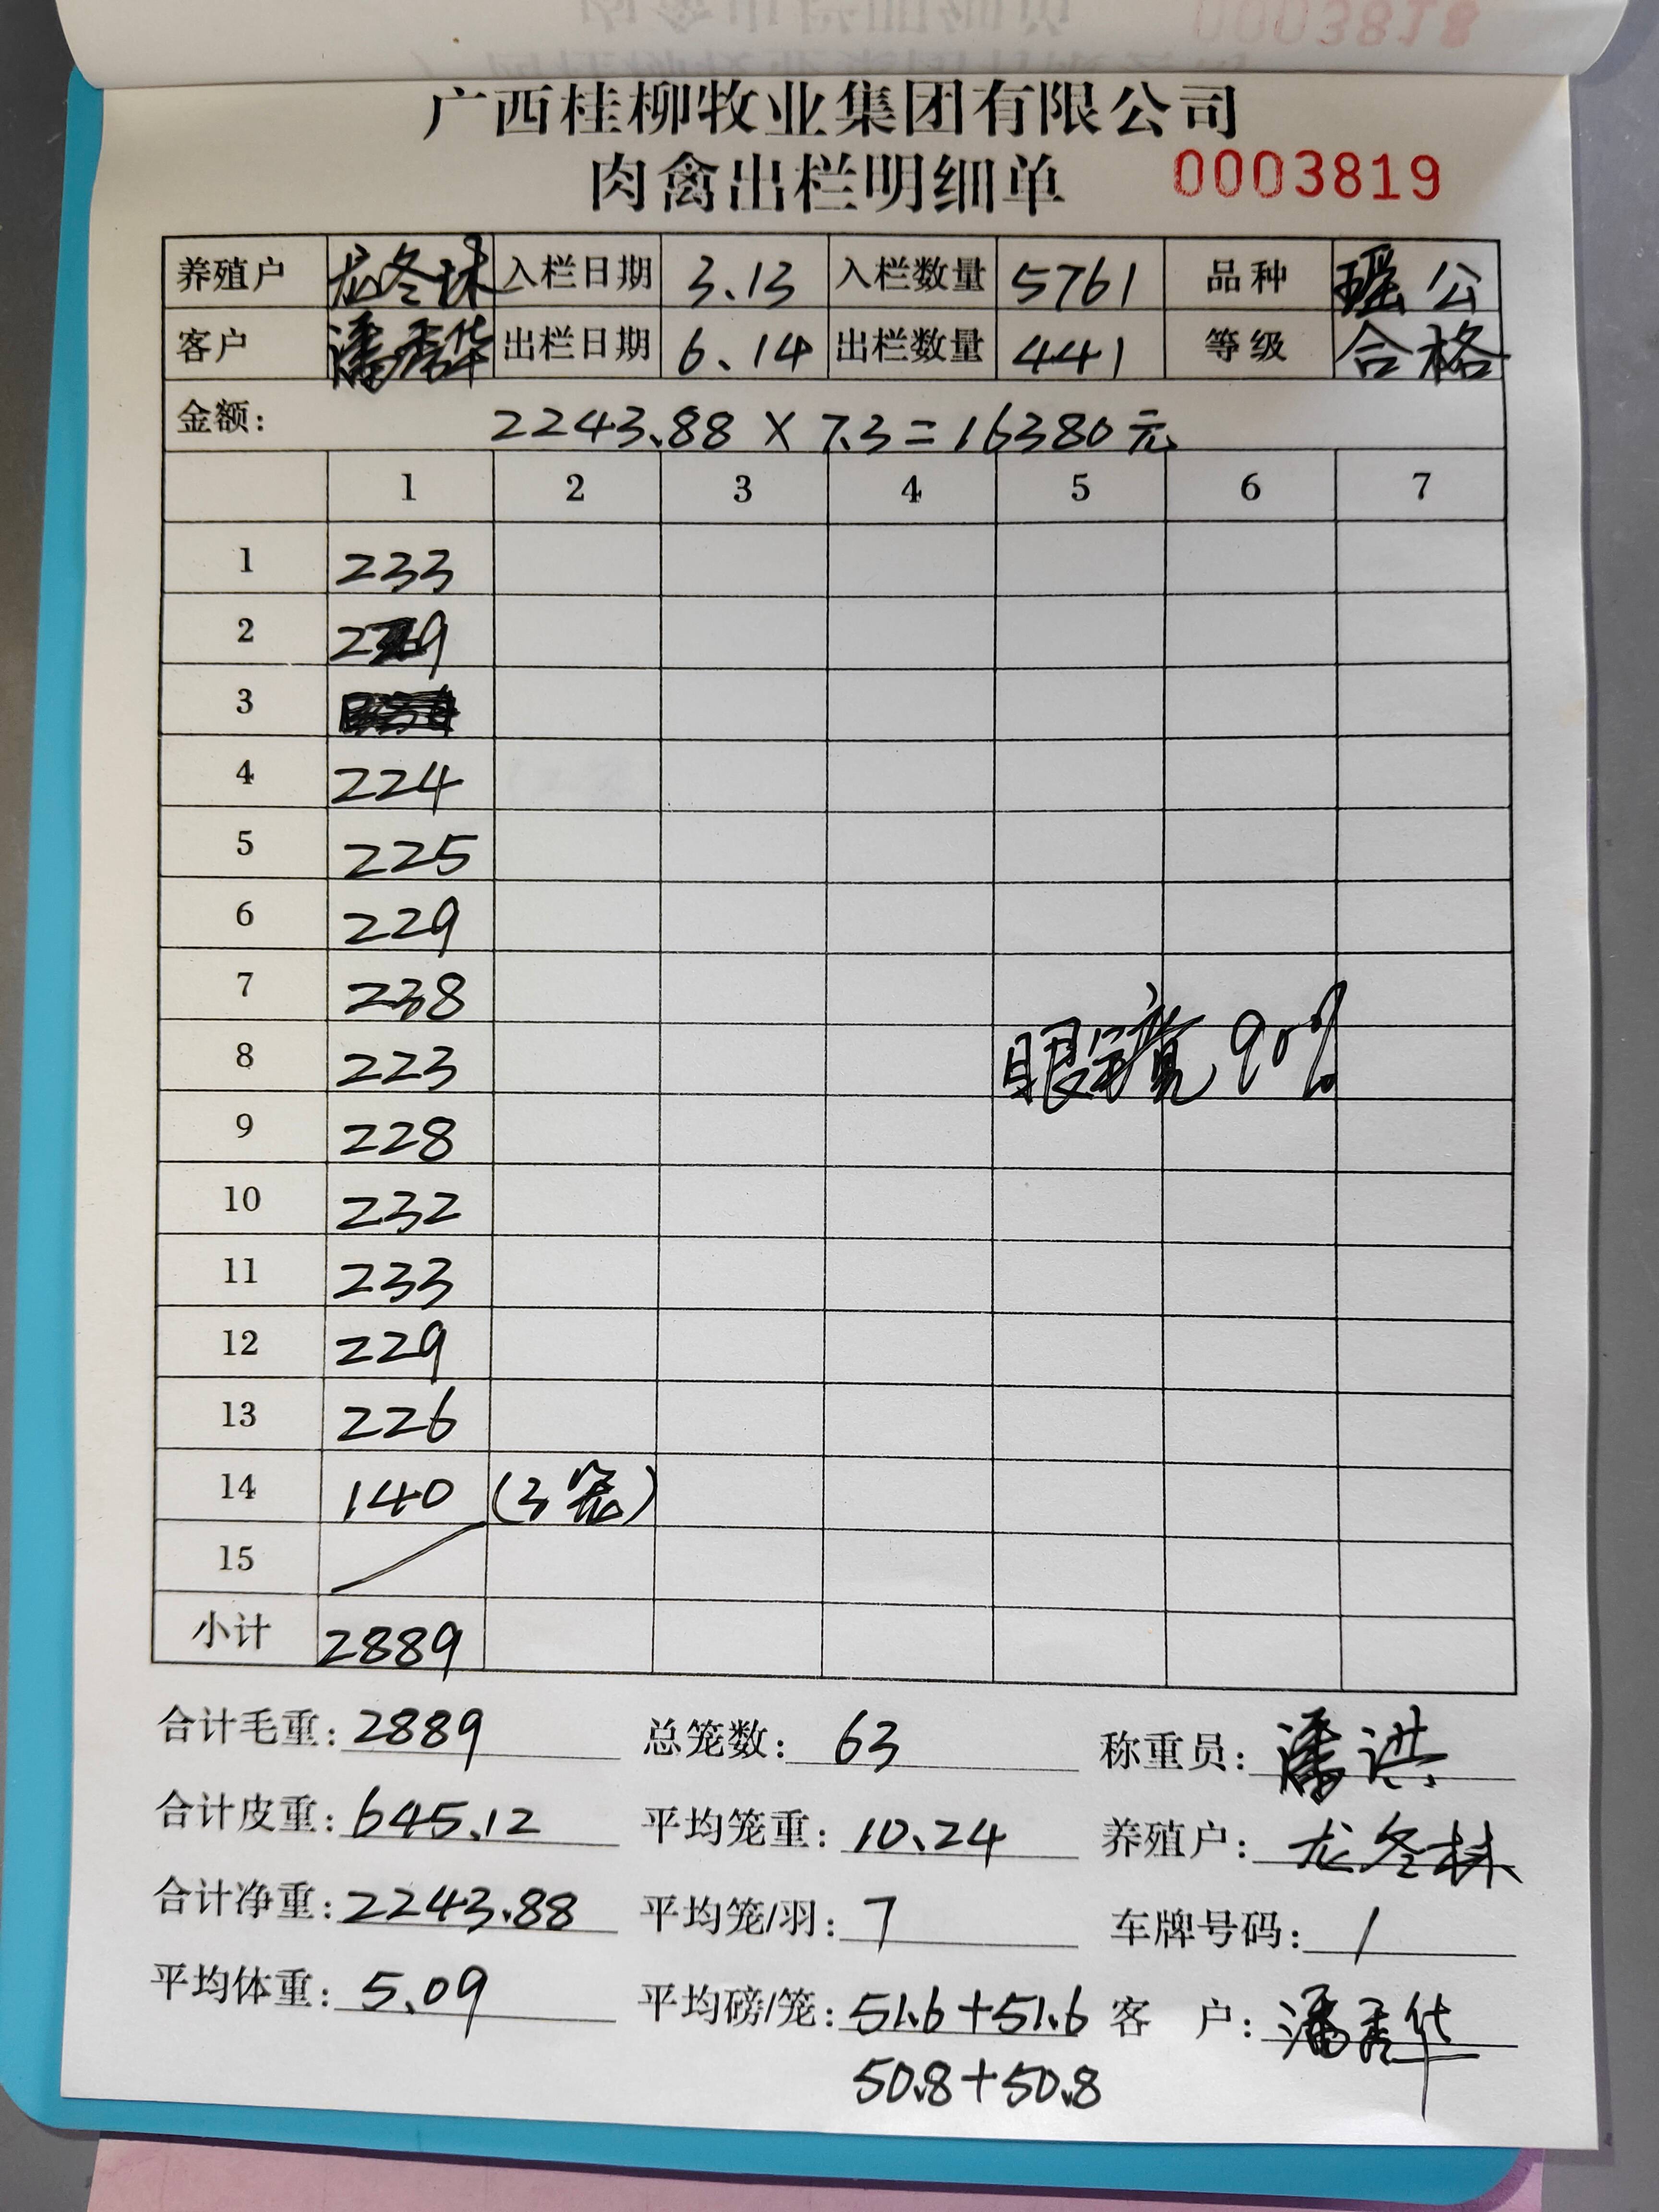 0003818
广西桂柳牧业集团有限公司
肉禽出栏明细单 0003819
养殖户 龙冬林 入栏日期 3.13 入栏数量 5761 品种 瑶公
客户 潘秀华 出栏日期 6.14 出栏数量 441 等级 合格
金额: 2243.88 × 7.3 = 16380元
1 2 3 4 5 6 7
1 233
2 229
3
4 224
5 225
6 229
7 238
8 223
眼睛亮 90%
9 228
10 232
11 233
12 229
13 226
14 140 (3笼)
15
小计 2889
合计毛重: 2889 总笼数: 63 称重员: 潘洪
合计皮重: 645.12 平均笼重: 10.24 养殖户: 龙冬林
合计净重: 2243.88 平均笼/羽: 7 车牌号码: /
平均体重: 5.09 平均磅/笼: 51.6+51.6 客 户: 潘秀华
50.8+50.8